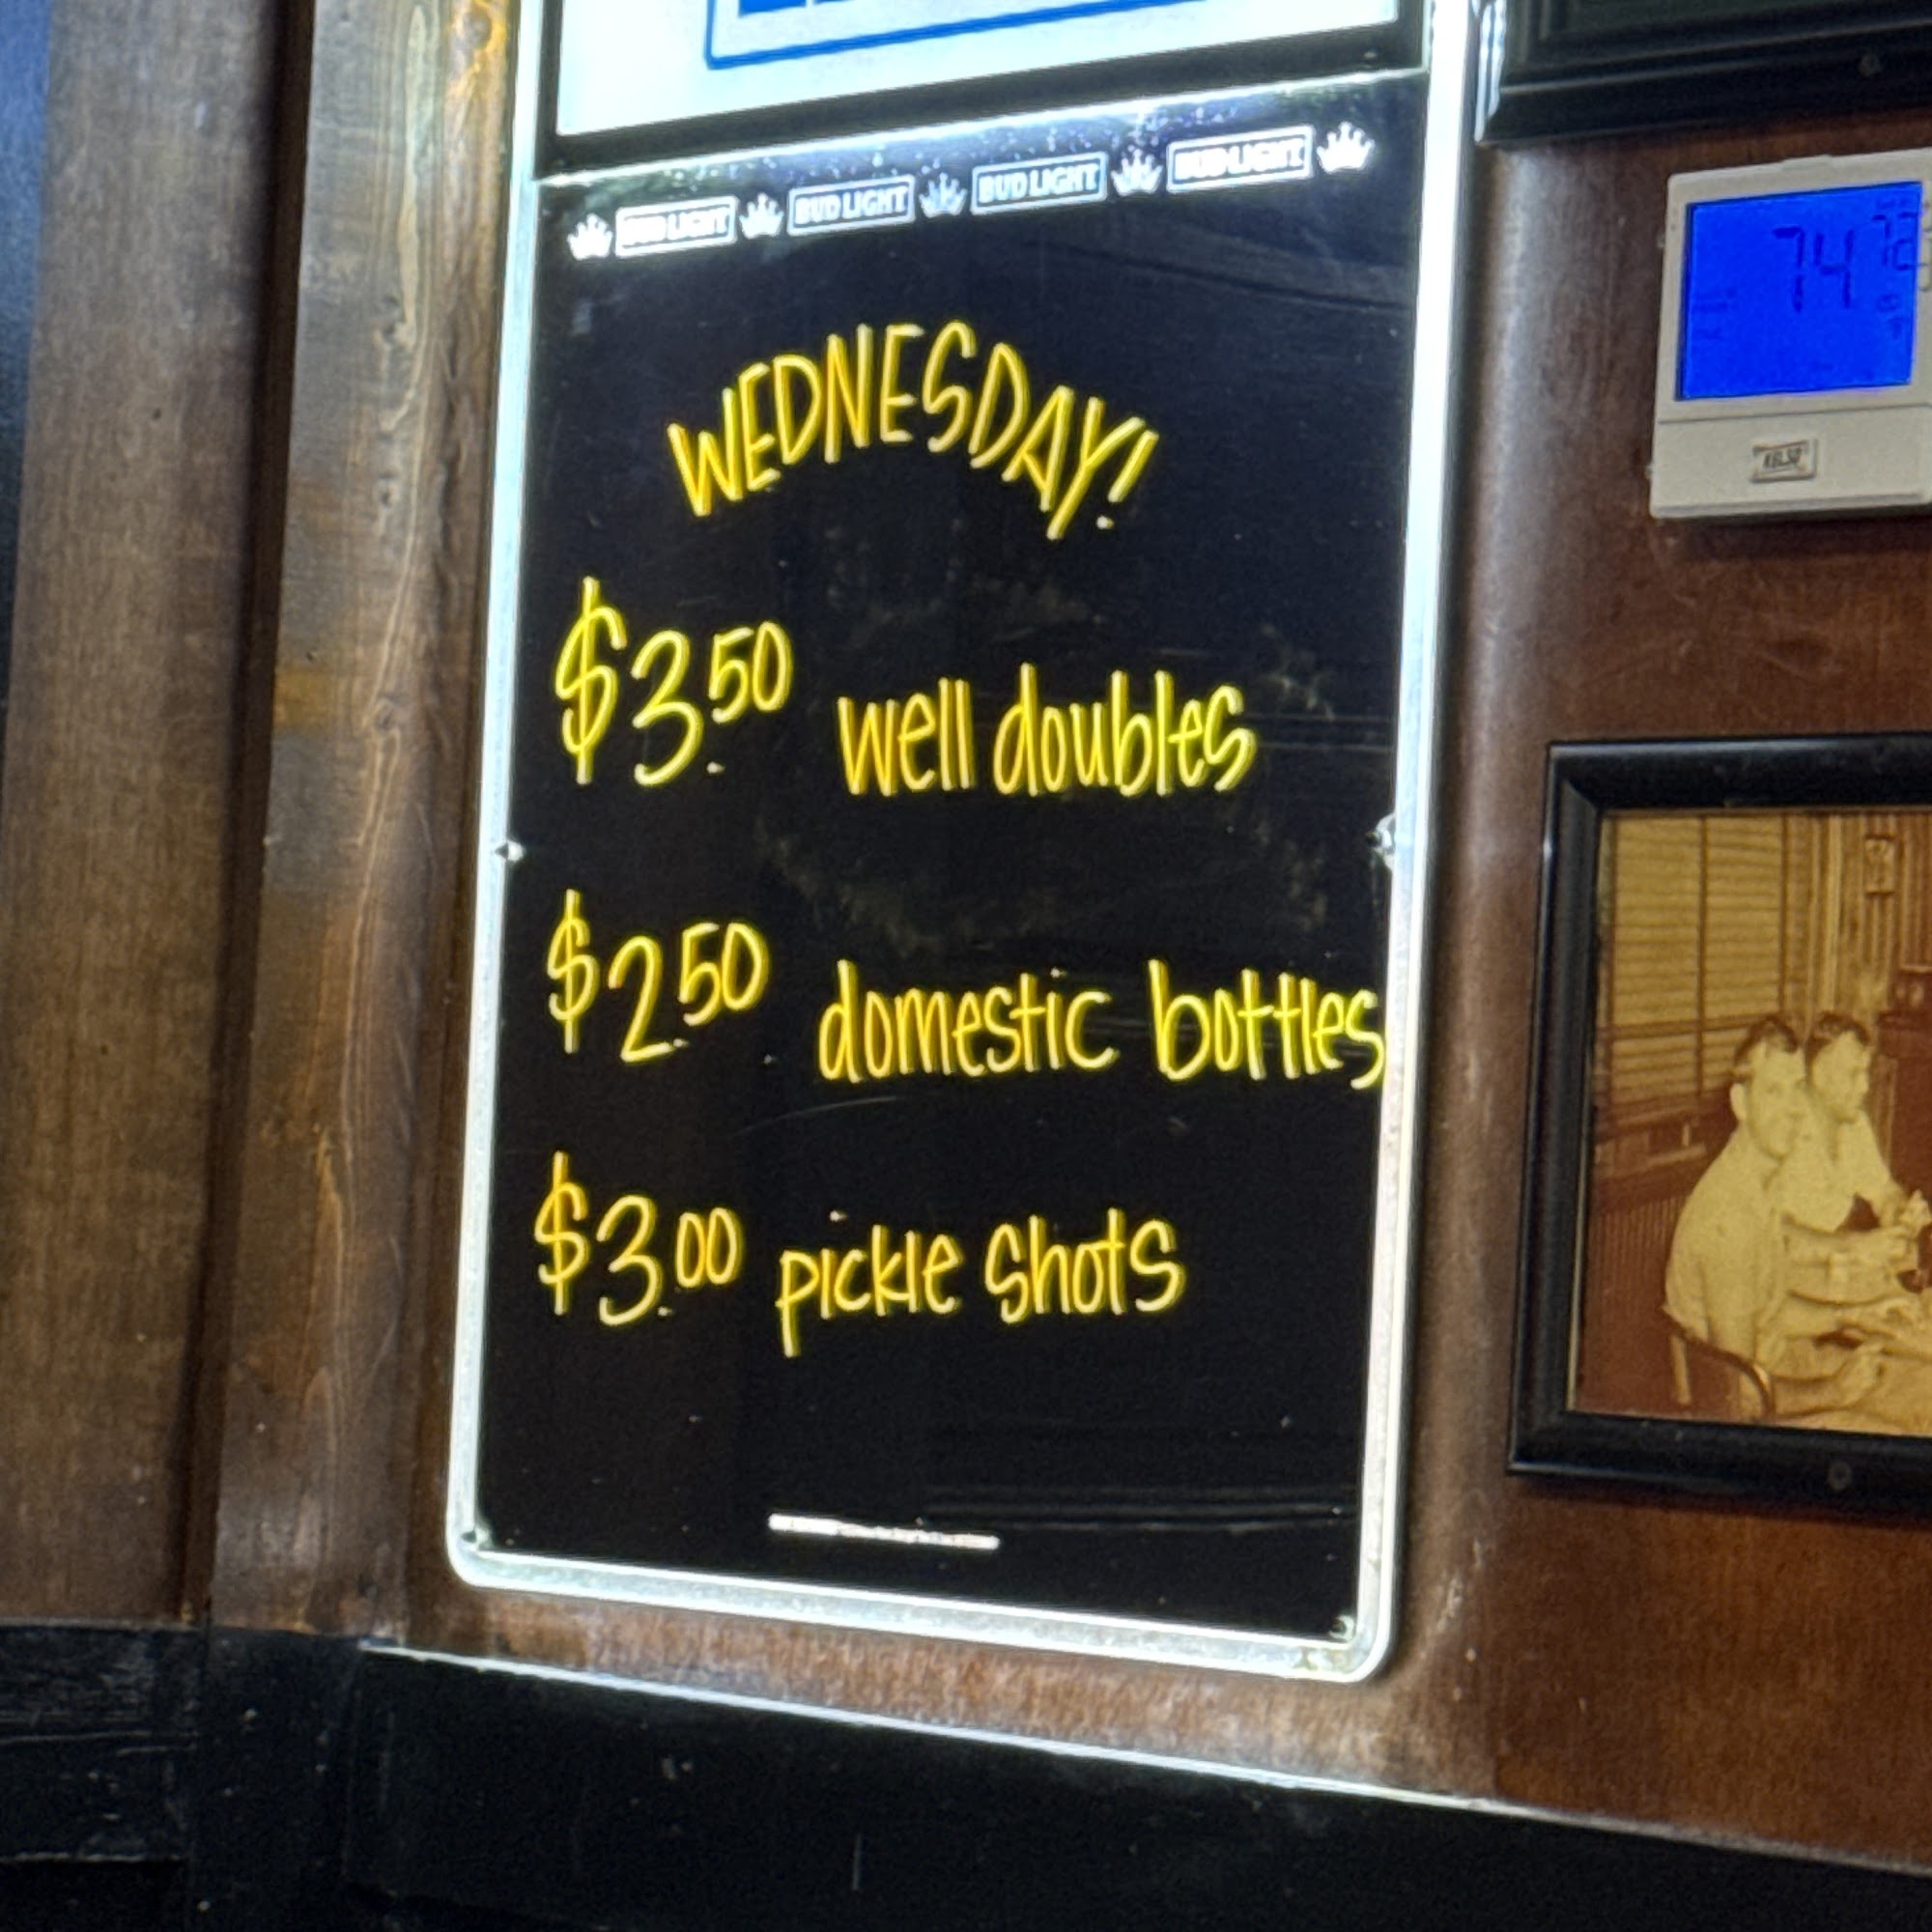 BUD LIGHT BUD LIGHT BUD LIGHT BUD LIGHT
WEDNESDAY!
$3.50 well doubles
$2.50 domestic bottles
$3.00 pickle shots
74 72